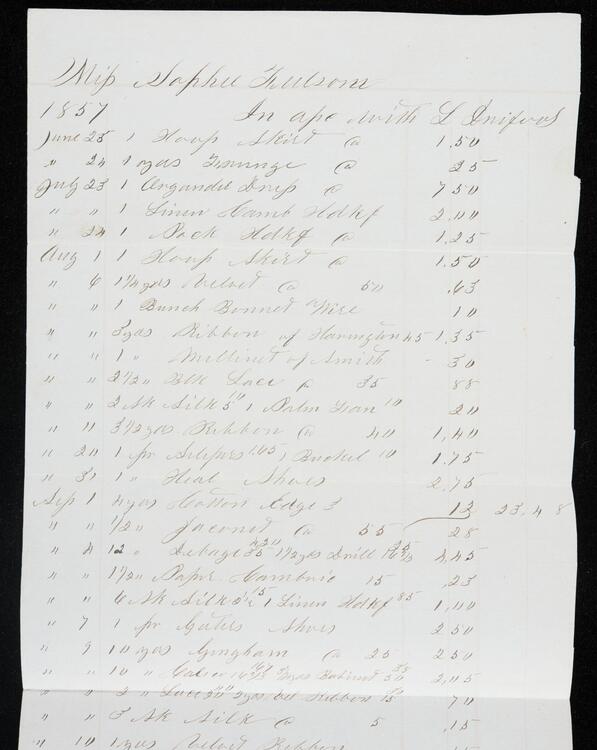 Miss Sophie Fulsom
1857 In apc with L
June 25 1 Hoop Skirt @ 1.50
" 24 1 yds Fringe @ 25
July 23 1 Organdet Dress @ 7 50
" " 1 Linen Camb Hdkf 2.00
" 24 1 Pock Hdkf @ 1.25
Aug 1 1 Hoop Skirt @ 1.50
" 6 1 1/4 yds Velvet @ 50 .63
" " 1 Bunch Bonnet Wire 10
" " 3 yds Ribbon of Harrington 45 1.35
" " 1 " Millinet of Smith - 30
" " 2 1/2 " Blk Lace @ 35 88
" " 2 Sk Silk 5 10 1 Palm Fan 10 20
" 11 3 1/2 yds Ribbon @ 40 1,40
" 20 1 pr Slippers 1.65 1 Bucket 10 1.75
" 31 1 " Heal Shoes 2.75
Sep 1 4 yds Cotton Edge 3 12 23,48
" " 1/2 " Jaconet @ 55 28
" 4 12 " Debage 35 4 20 1 1/2 yds Drill 4,45
" " 1 1/2 " Papr Cambric 15 .23
" " 6 Sk Silk 15 1 Linen Hdkf 85 1,00
" 7 1 pr Gaters Shoes 2 50
" 9 10 yds Gingham @ 25 2 50
" " 10 " yds Bobinet 2,05
" " 2 " Lace yds Ribbon 70
" " 3 Sk Silk @ 5 .15
" 10 1 yds Velvet Ribbon